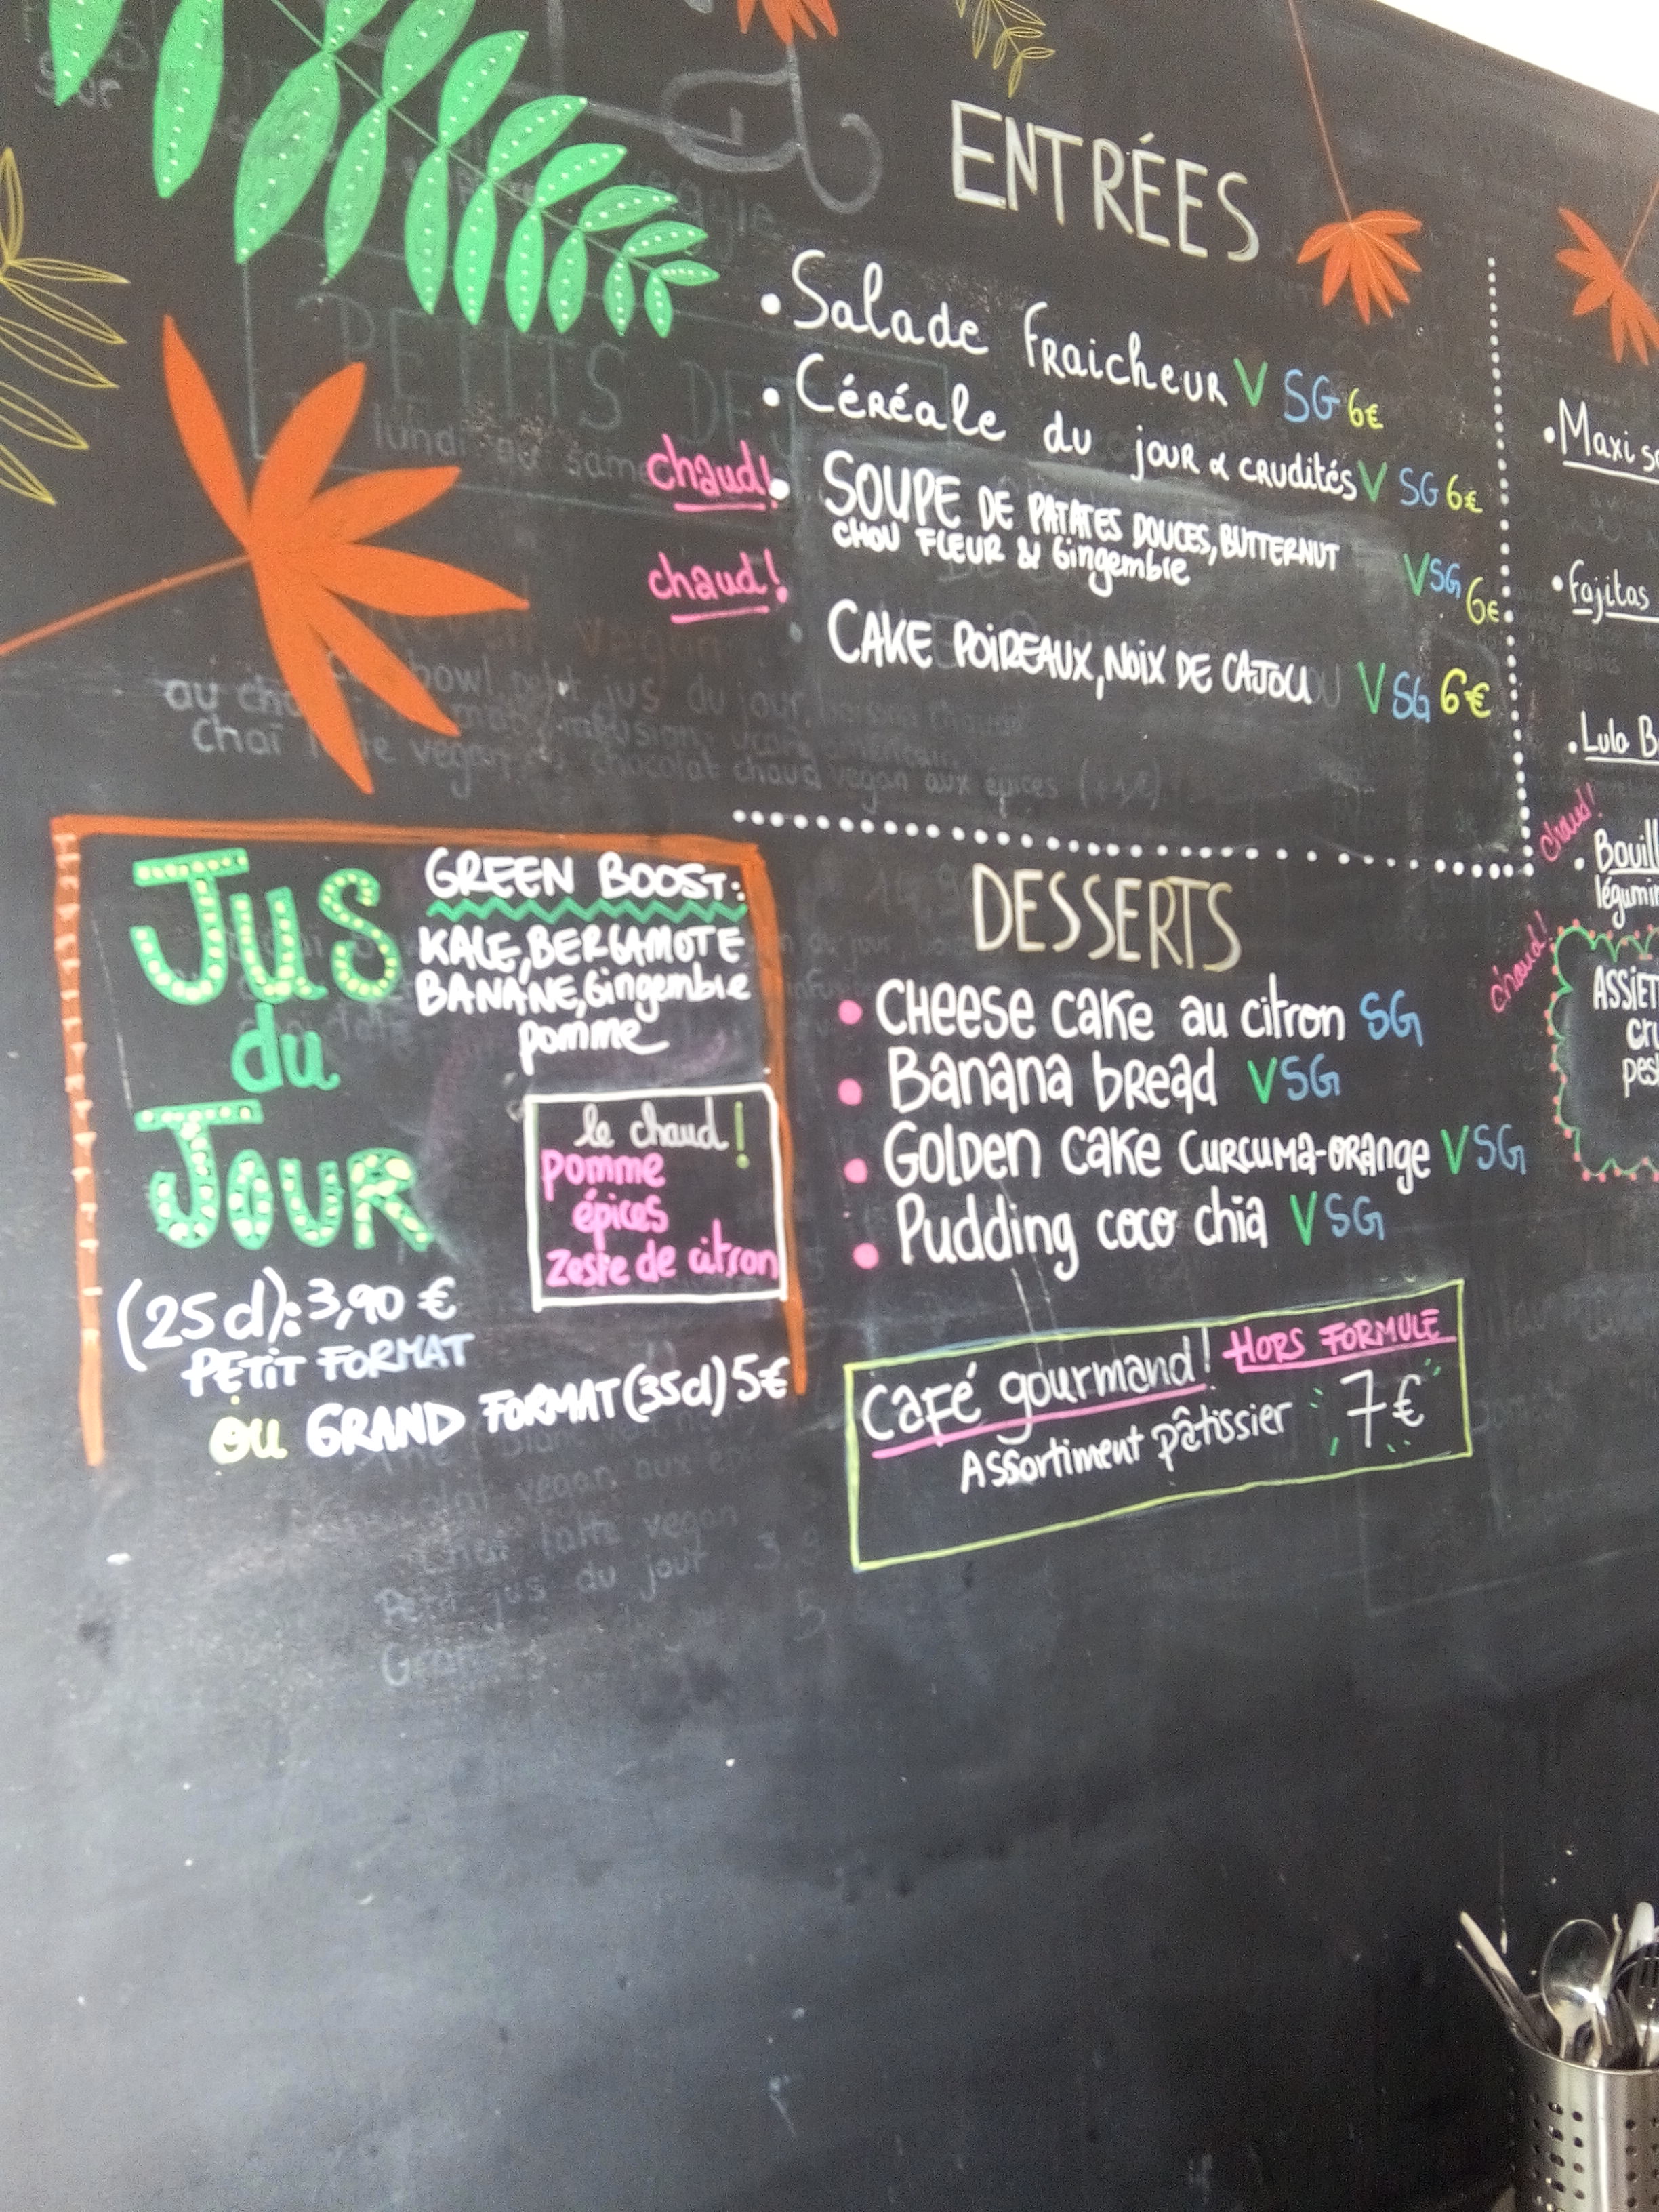 ENTRÉES
• Salade fraicheur V SG 6€
• Céréale du jour & crudités V SG 6€
chaud! • SOUPE DE PATATES DOUCES, BUTTERNUT
CHOU FLEUR & Gingembre V SG 6€
chaud! CAKE POIREAUX, NOIX DE CAJOU V SG 6€
JUS
du
JOUR
GREEN BOOST:
KALE, BERGAMOTE
BANANE, Gingembre
pomme
le chaud!
pomme
épices
zeste de citron
(25cl): 3,90 €
PETIT FORMAT
ou GRAND FORMAT (35cl) 5€
DESSERTS
• Cheese cake au citron SG
• Banana bread V SG
• Golden cake curcuma-orange V SG
• Pudding coco chia V SG
Café gourmand! HORS FORMULE
Assortiment pâtissier 7€
• Maxi
• Fajitas
• Lula
chaud!
•
chaud!